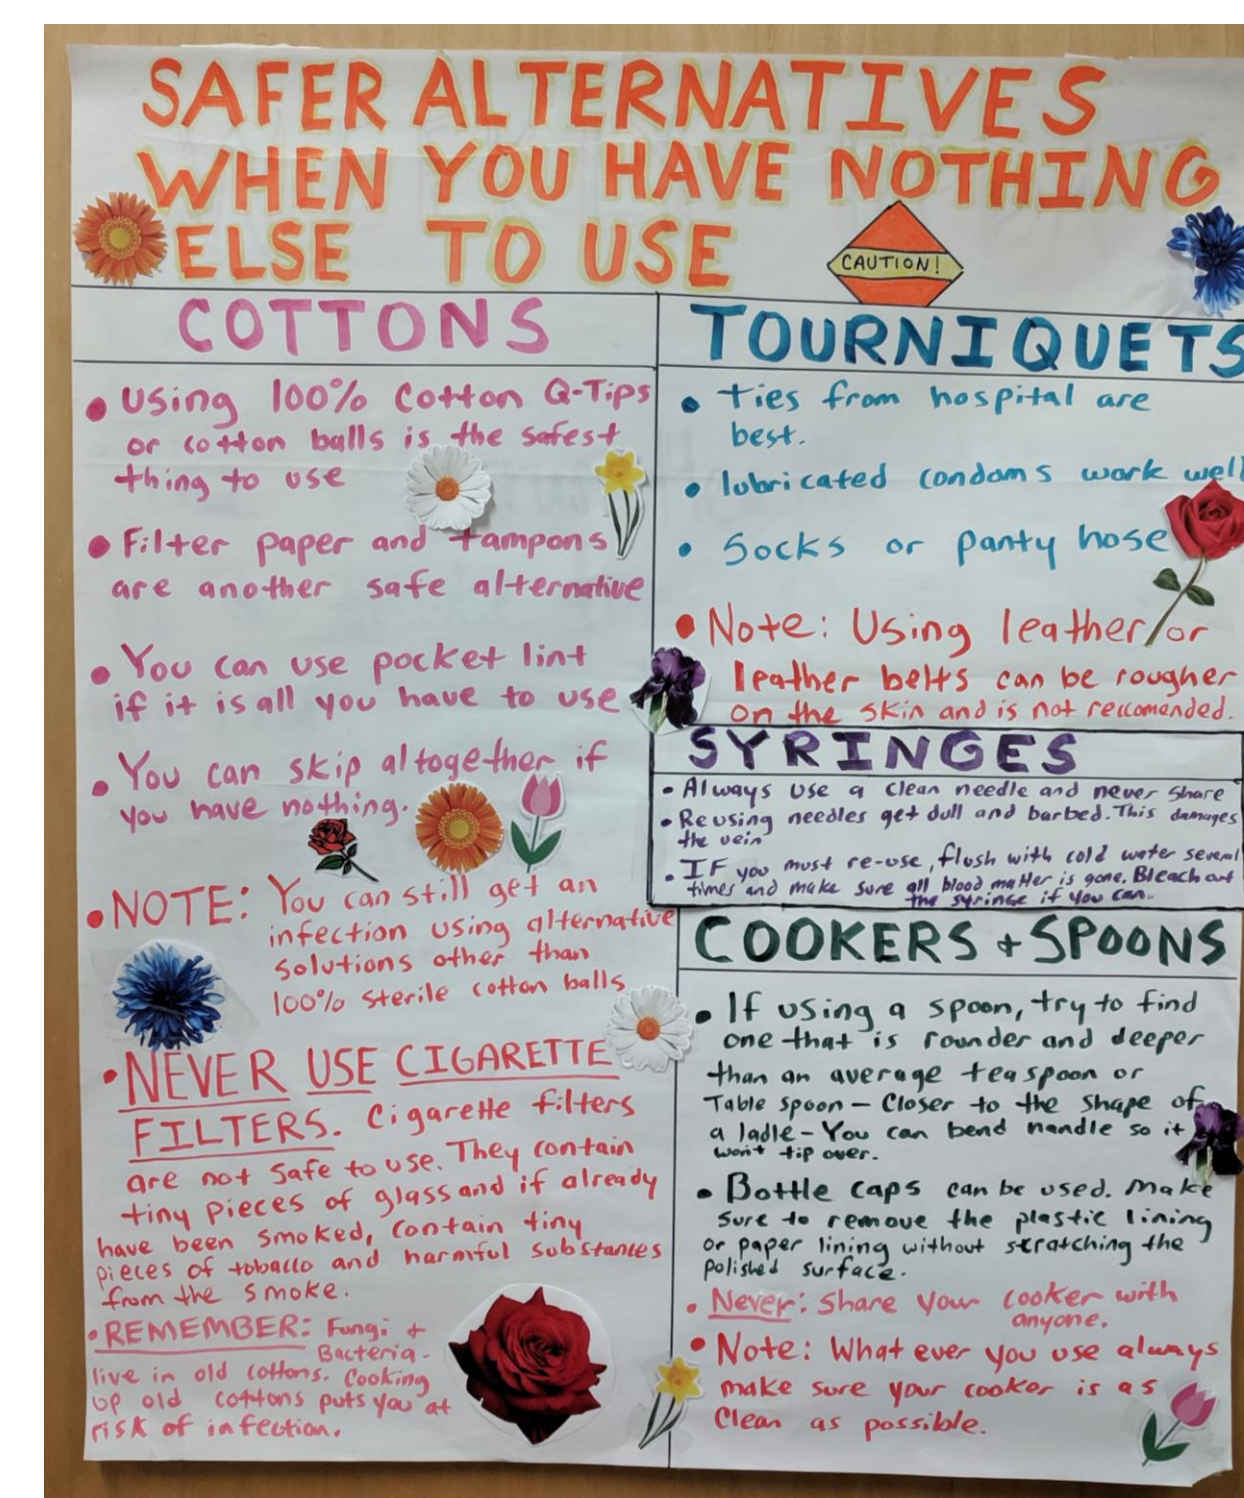 SAFER ALTERNATIVES
WHEN YOU HAVE NOTHING
ELSE TO USE
CAUTION!
COTTONS
• Using 100% Cotton Q-Tips
or cotton balls is the safest
thing to use
• Filter paper and tampons
are another safe alternative
• You can use pocket lint
if it is all you have to use
• You can skip altogether if
you have nothing.
• NOTE: You can still get an
infection using alternative
solutions other than
100% sterile cotton balls
• NEVER USE CIGARETTE
FILTERS. Cigarette filters
are not safe to use. They contain
tiny pieces of glass and if already
have been smoked, contain tiny
pieces of tobacco and harmful substances
from the smoke.
• REMEMBER: Fungi +
Bacteria -
live in old cottons. Cooking
up old cottons puts you at
risk of infection.
TOURNIQUETS
• Ties from hospital are
best.
• lubricated condoms work well
• Socks or panty hose
• Note: Using leather or
leather belts can be rougher
on the skin and is not reccomended.
SYRINGES
• Always use a clean needle and never share
• Reusing needles get dull and barbed. This damages
the vein
• IF you must re-use, flush with cold water several
times and make sure all blood matter is gone. Bleach out
the syringe if you can.
COOKERS + SPOONS
• If using a spoon, try to find
one that is rounder and deeper
than an average teaspoon or
Table spoon - Closer to the shape of
a ladle - You can bend handle so it
won't tip over.
• Bottle caps can be used. Make
sure to remove the plastic lining
or paper lining without scratching the
polished surface.
• Never: Share your cooker with
anyone.
• Note: What ever you use always
make sure your cooker is as
Clean as possible.